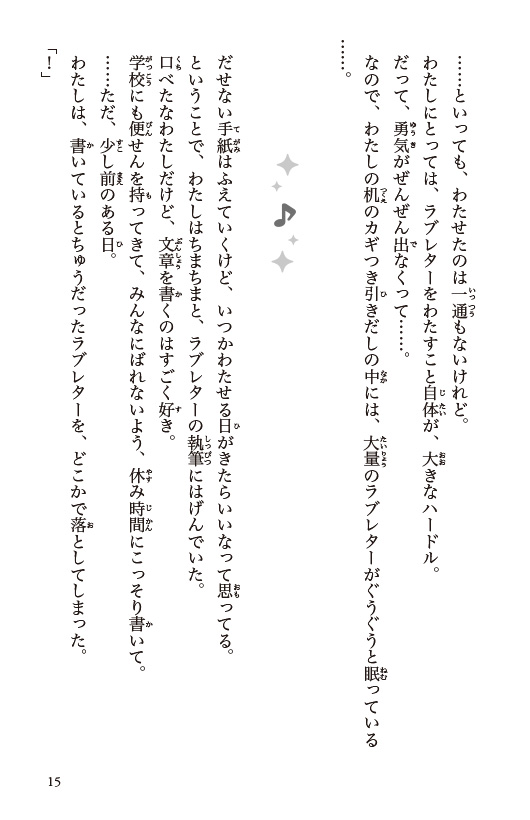 ……といっても、わたせたのは一通もないけれど。
わたしにとっては、ラブレターをわたすこと自体が、大きなハードル。
だって、勇気がぜんぜん出なくって……。
なので、わたしの机のカギつき引きだしの中には、大量のラブレターがぐうぐうと眠っている
……。
だせない手紙はふえていくけど、いつかわたせる日がきたらいいなって思ってる。
ということで、わたしはちまちまと、ラブレターの執筆にはげんでいた。
口べたなわたしだけど、文章を書くのはすごく好き。
学校にも便せんを持ってきて、みんなにばれないよう、休み時間にこっそり書いて。
……ただ、少し前のある日。
わたしは、書いているとちゅうだったラブレターを、どこかで落としてしまった。
「!」
15